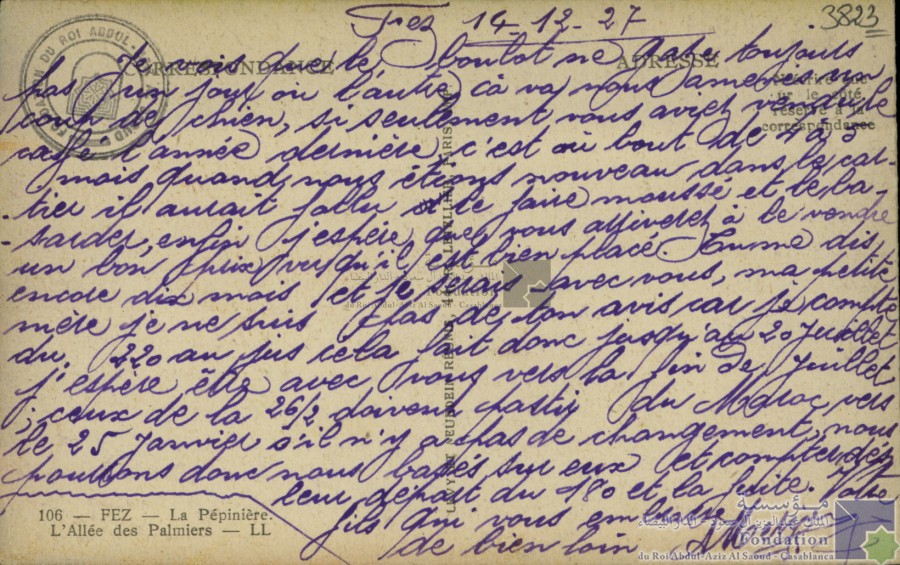 Fez 14-12-27
3823
CORRESPONDANCE
ADRESSE
Je vois que le boulot ne gaze toujours
pas un jour ou l'autre çà va nous amener un
coup de chien, si seulement vous aviez vendu le
café l'année dernière, c'est au bout de
mois quand nous étions nouveau dans le quar-
tier il aurait fallu le faire mousse et le ba-
zarder, enfin j'espère que vous arriverez à le vendre
un bon prix vu qu'il est bien placé. Tu me dis
encore dix mois et je serais avec vous, ma petite
mère je ne suis pas de ton avis car je compte
du 220 au jus cela fait donc jusqu'au 20 Juillet
j'espère être avec vous vers la fin de Juillet
; ceux de la 26/2 doivent partir du Maroc vers
le 25 Janvier s'il n'y a pas de changement, nous
pouvons donc nous basés sur eux et compter dès
leur départ du 180 et la fuite. Votre
fils qui vous embrasse
de bien loin
106 — FEZ — La Pépinière.
L'Allée des Palmiers — LL
Fondation
du Roi Abdul-Aziz Al Saoud - Casablanca
مؤسسة
الملك عبد العزيز آل سعود - الدار البيضاء
Fondation
du Roi Abdul-Aziz Al Saoud - Casablanca